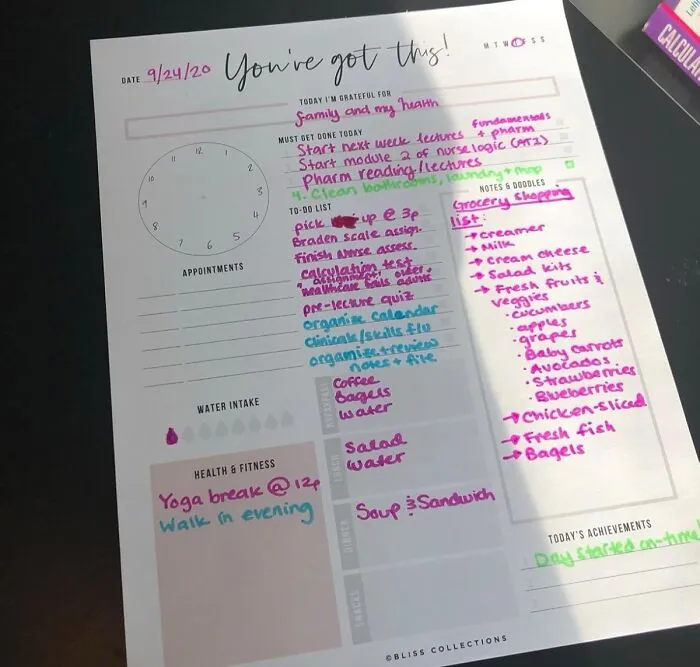 DATE 9/24/20 You've got this! M T W T F S S
TODAY I'M GRATEFUL FOR
family and my health
12
11
1
10
2
9
3
8
4
7
6
5
MUST GET DONE TODAY
Start next week lectures fundamentals + pharm
Start module 2 of nurse logic (ATI)
Pharm reading/lectures
4. Clean bathrooms, laundry + mop
TO-DO LIST
pick up @ 3p
Braden scale assign.
Finish nurse assess.
calculation test
" assignment, older
healthcare tools adults
pre-lecture quiz
organize calendar
clinicals/skills f/u
organize + review
notes + file
APPOINTMENTS
WATER INTAKE
HEALTH & FITNESS
Yoga break @ 12p
Walk in evening
BREAKFAST
Coffee
Bagels
Water
LUNCH
Salad
Water
DINNER
Soup & Sandwich
SNACKS
NOTES & DOODLES
Grocery shopping
list:
→ creamer
→ Milk
→ cream cheese
→ Salad kits
→ Fresh fruits &
veggies
· cucumbers
· apples
· grapes
· Baby carrots
· Avocados
· Strawberries
· Blueberries
→ Chicken-sliced
→ Fresh fish
→ Bagels
TODAY'S ACHIEVEMENTS
Day started on-time
©BLISS COLLECTIONS